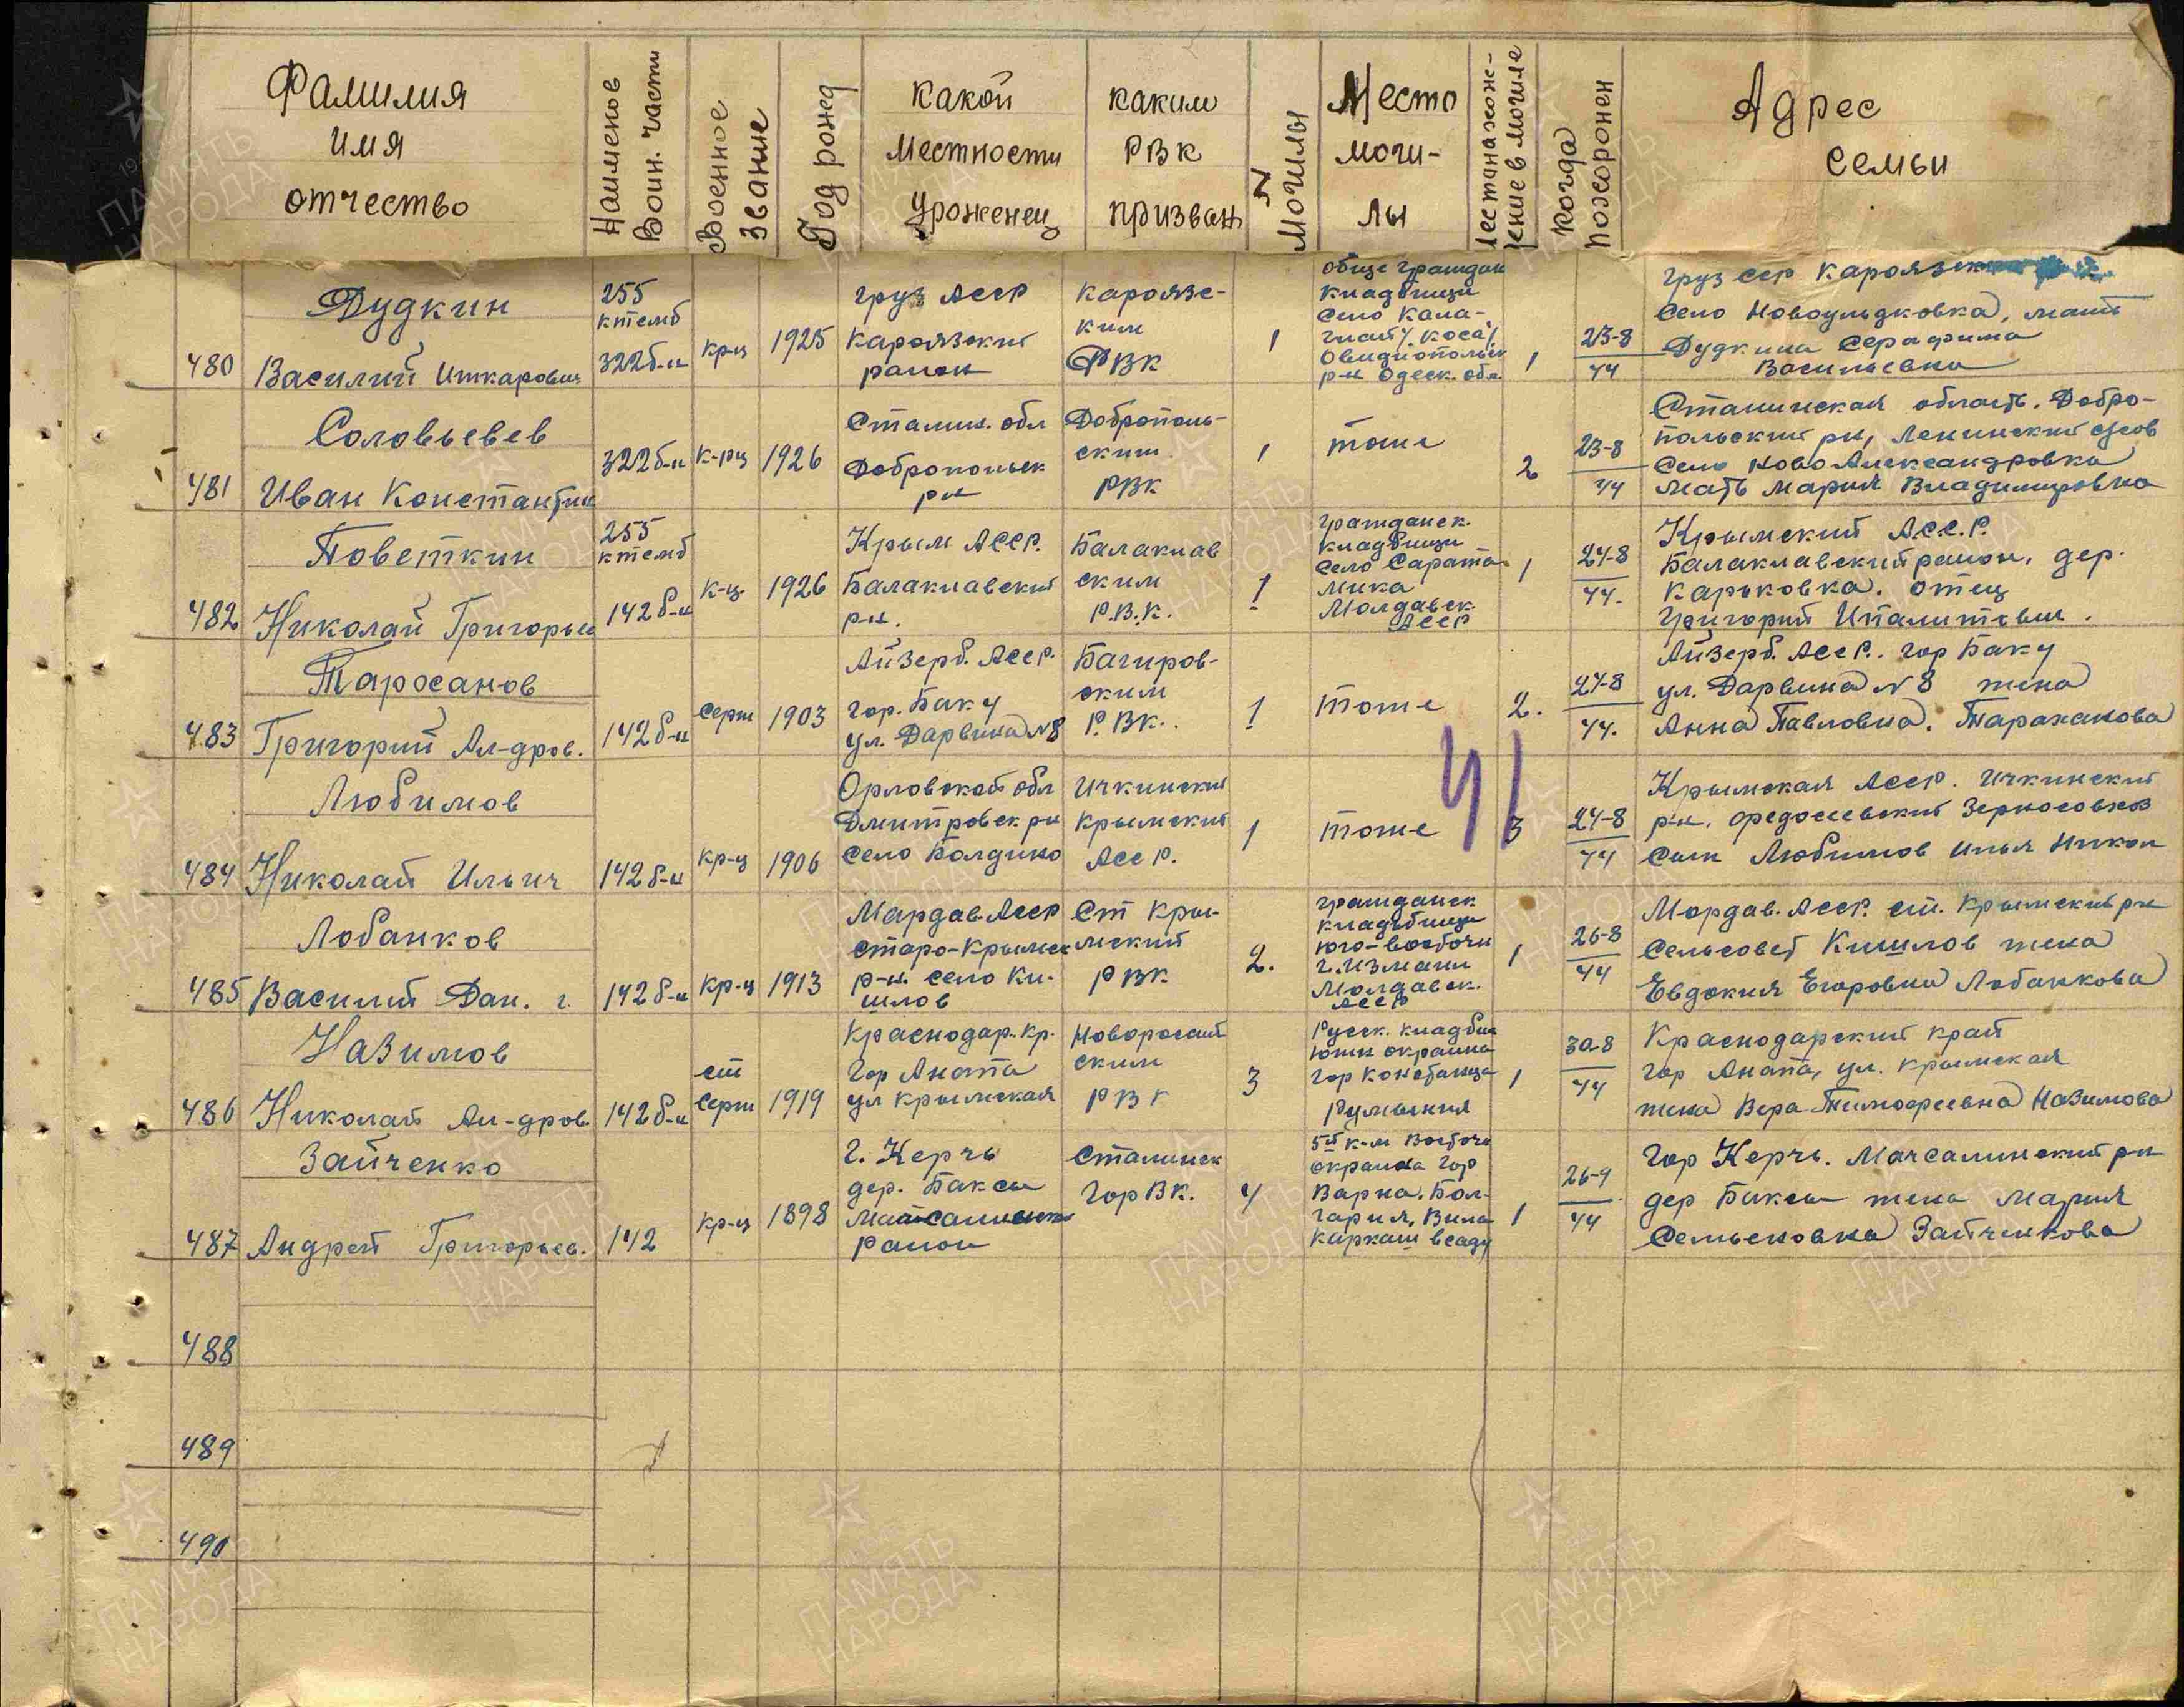 Фамилия
имя
отчество
Наименов
Воин. части
Военное
звание
Год рожед
какой
местности
уроженец
каким
РВК
призван
N
Могилы
Место
моги-
лы
Когда
похоронен
Адрес
семьи
480
Дудкин
Василий
255
ктемб
322 б-н
кр-ц
1925
груз Асср
Кароязский
район
Кароязс-
ким
РВК
1
обще граждан
кладбищи
село Кала-
глия /. коса /.
Овидиопольск
р-н Одеск. обл.
1
23-8
44
груз сср Кароязск
село Новоульдковка, мать
Дудкина Серафима
Васильевна
481
Соловьевев
Иван Константин
322 б-н
к-рц
1926
Сталин. обл
Добропольск
рн
Доброполь-
ским
РВК
1
тоже
2
23-8
44
Сталинская область. Добро-
польский рн, Ленинский с/сов
село Ново Александровка
мать Мария Владимировна
482
Поветкин
Николай Григорьев
255
ктемб
142 б-н
к-ц
1926
Крым Асср.
Балаклавский
р-н.
Балаклав
ским
Р.В.К.
1
гражданск.
кладбищи
село Сарата-
Молдавск.
Асср
1
24-8
44.
Крымский А.с.с.р.
Балаклавский район, дер.
Карьковка. отец
Григорий Ипалитович.
483
Таросанов
Григорий Ал-дров.
142 б-н
Серж
1903
Айзерб. Асср.
гор. Баку
ул. Дарвина N8
Багиров-
ским
Р.ВК.
1
тоже
2.
24-8
44.
Айзерб. Асср. гор Баку
ул. Дарвина N 8 жена
Анна Павловна. Тараханова
484
Любимов
Николай Ильич
142 б-н
кр-ц
1906
Орловской обл
Дмитровск рн
село Болдино
Ичкинский
Крымский
Асср.
1
тоже
3
24-8
44
Крымская Асср. Ичкинский
р-н. Федосеевский Зерносовхоз
сын Любимов Илья Никол
485
Лобанков
Василий Дан.
142 б-н
кр-ц
1913
Мардав. Асср
Старо-Крымск
р-н. село Ки-
шлов
Ст Кры-
мский
РВК
2.
гражданск
кладбищи
юго-восточн
г. Измаил
Молдавск.
Асср
1
26-8
44
Мордав. Асср. ст. Крымский рн
сельсовет Кишлов жена
Евдокия Егоровна Лобанкова
486
Назимов
Николай Ал-дров.
142 б-н
ст
Серж
1919
Краснодар. кр.
гор Анапа
ул Крымская
Новоросий
ским
РВК
3
Русск. кладбищ
южн окраина
гор Констанца
Румыния
1
30-8
44
Краснодарский край
гор Анапа, ул. Крымская
жена Вера Тимофеевна Назимова
487
Зайченко
Андрей Григорьев.
142
кр-ц
1898
г. Керчь
дер. Баксы
район
Сталинск
Гор ВК.
4
5й к-м Восточн
окраина гор
Варна. Бол-
гария, Вила
каркаш всаду
1
26-9
44
гор Керчь. Маяксалинский рн
дер Баксы жена Мария
Зайченкова
488
489
490
ПАМЯТЬ
НАРОДА